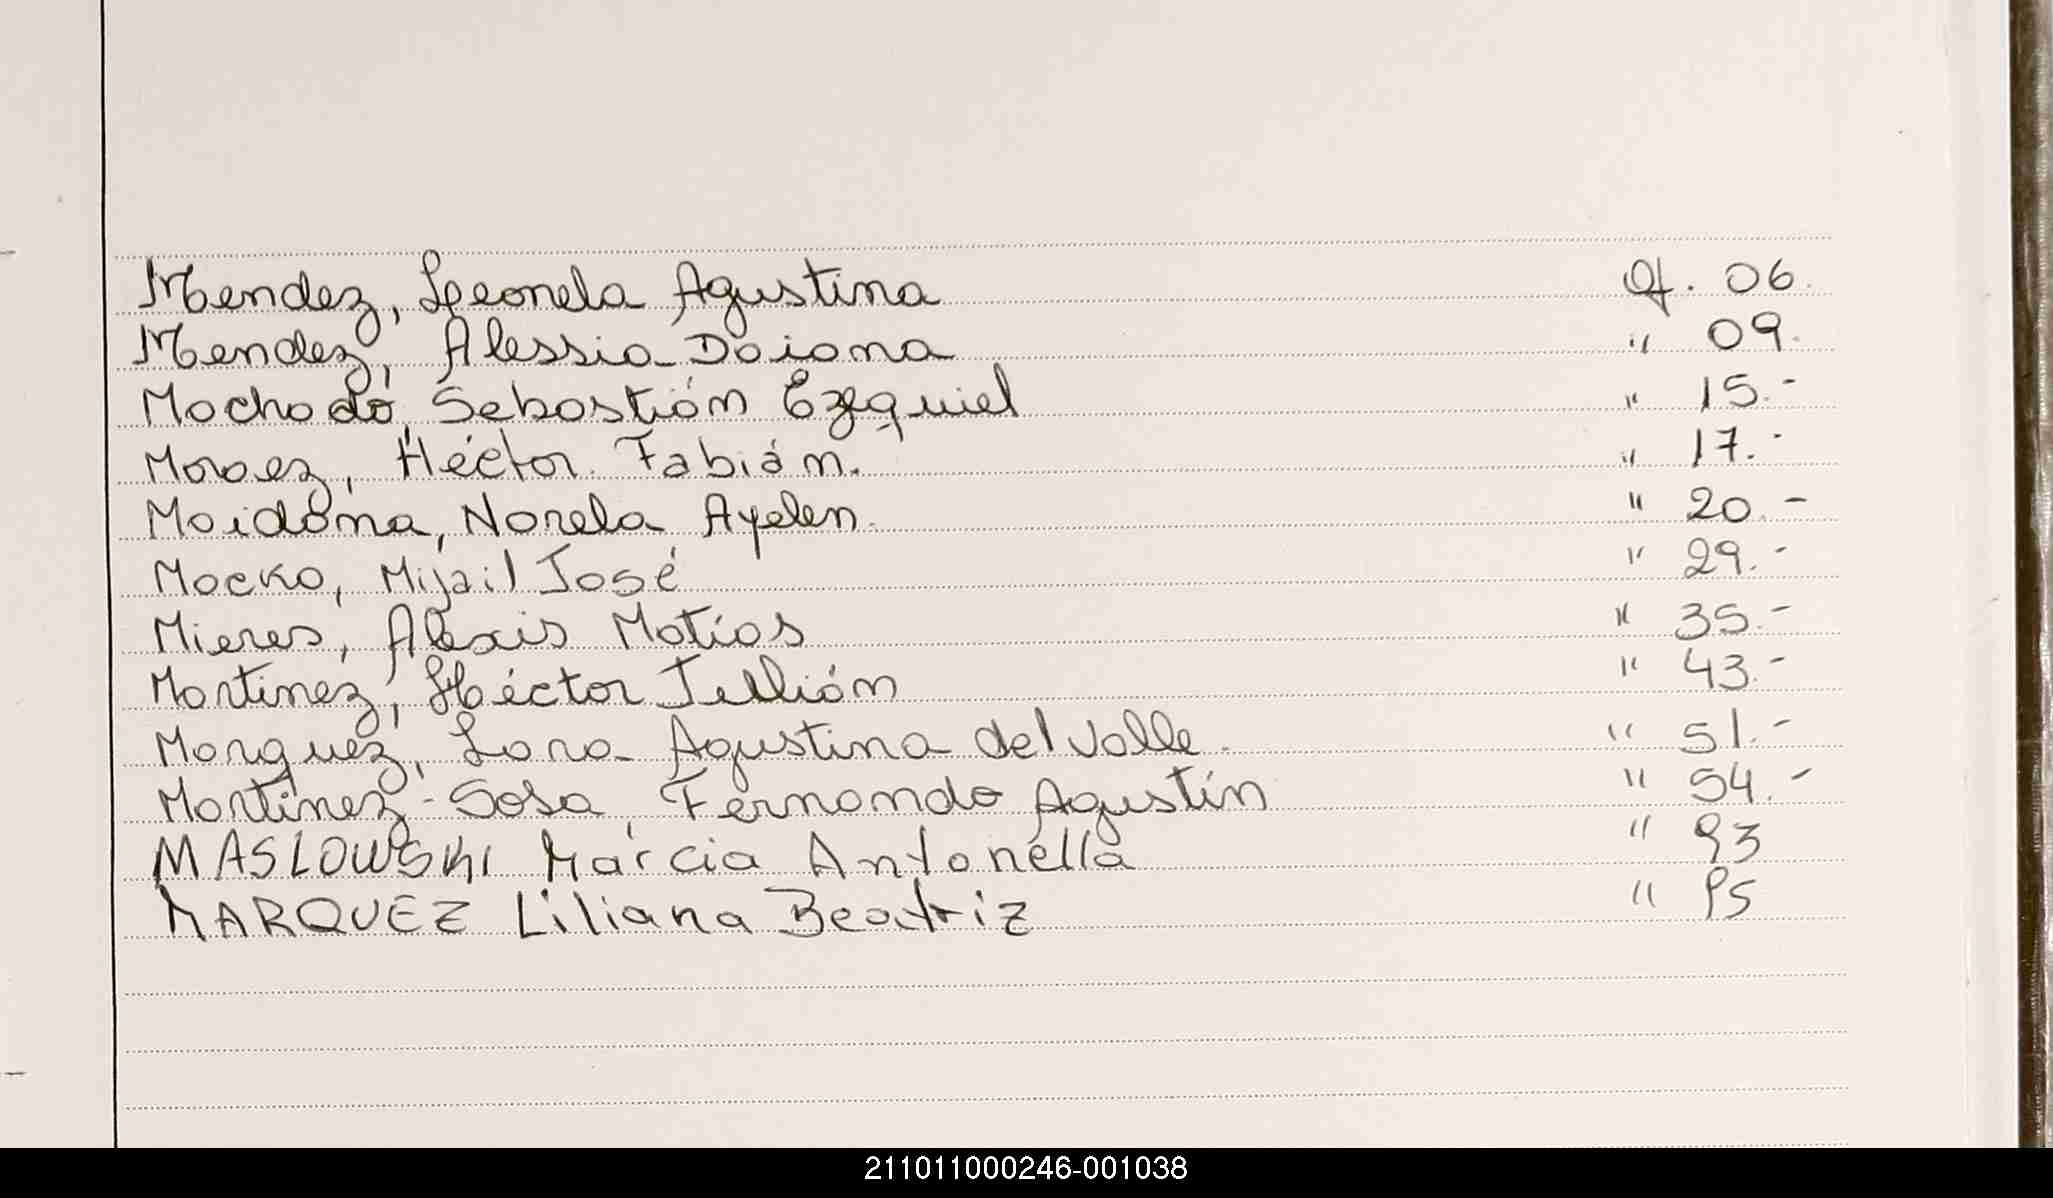 Mendez, Leonela Agustina Of. 06.
Mendez, Alessia Daiana " 09.
Machado, Sebastián Ezequiel " 15.-
Moraez, Héctor Fabián. " 17.-
Maidana, Norela Ayelen. " 20.-
Macko, Mijail José " 29.-
Mieres, Alexis Matías " 35.-
Martinez, Héctor Jullián " 43.-
Marquez, Lara Agustina del Valle. " 51.-
Martinez-Sosa, Fernando Agustín " 54.-
MASLOWSKI Marcia Antonella " 93
MARQUEZ Liliana Beatriz " 95
211011000246-001038